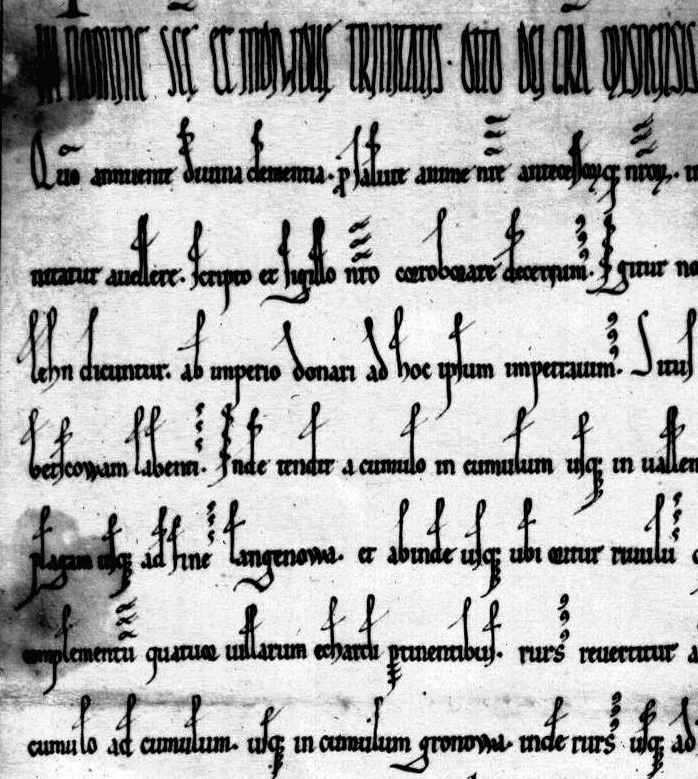 IN NOMINE SCE ET INDIVIDUE TRINITATIS · OTTO DEI GRA
Quō annuente diuina clementia · p̲ salute anime nr̄e antecessorūq; nr̄orꝝ ·
nitatur auellere · scripto et sigillo nr̄o corroborare decreuim᾿ · Igitur no
lehn dicuntur · ab imperio donari ad hoc ipsum impetrauim᾿ · Situs
labenti · Inde tendit a cumulo in cumulum usq; in uallem
plagam usq; ad finē langenowa · et abinde usq; ubi oritur riuulū
complementū quatuor uillarum echardi ptinentibus · rurs᾿ reuertitur a
cumulo ad cumulum · usq; in cumulum gronowa · inde rurs᾿ usq; ad